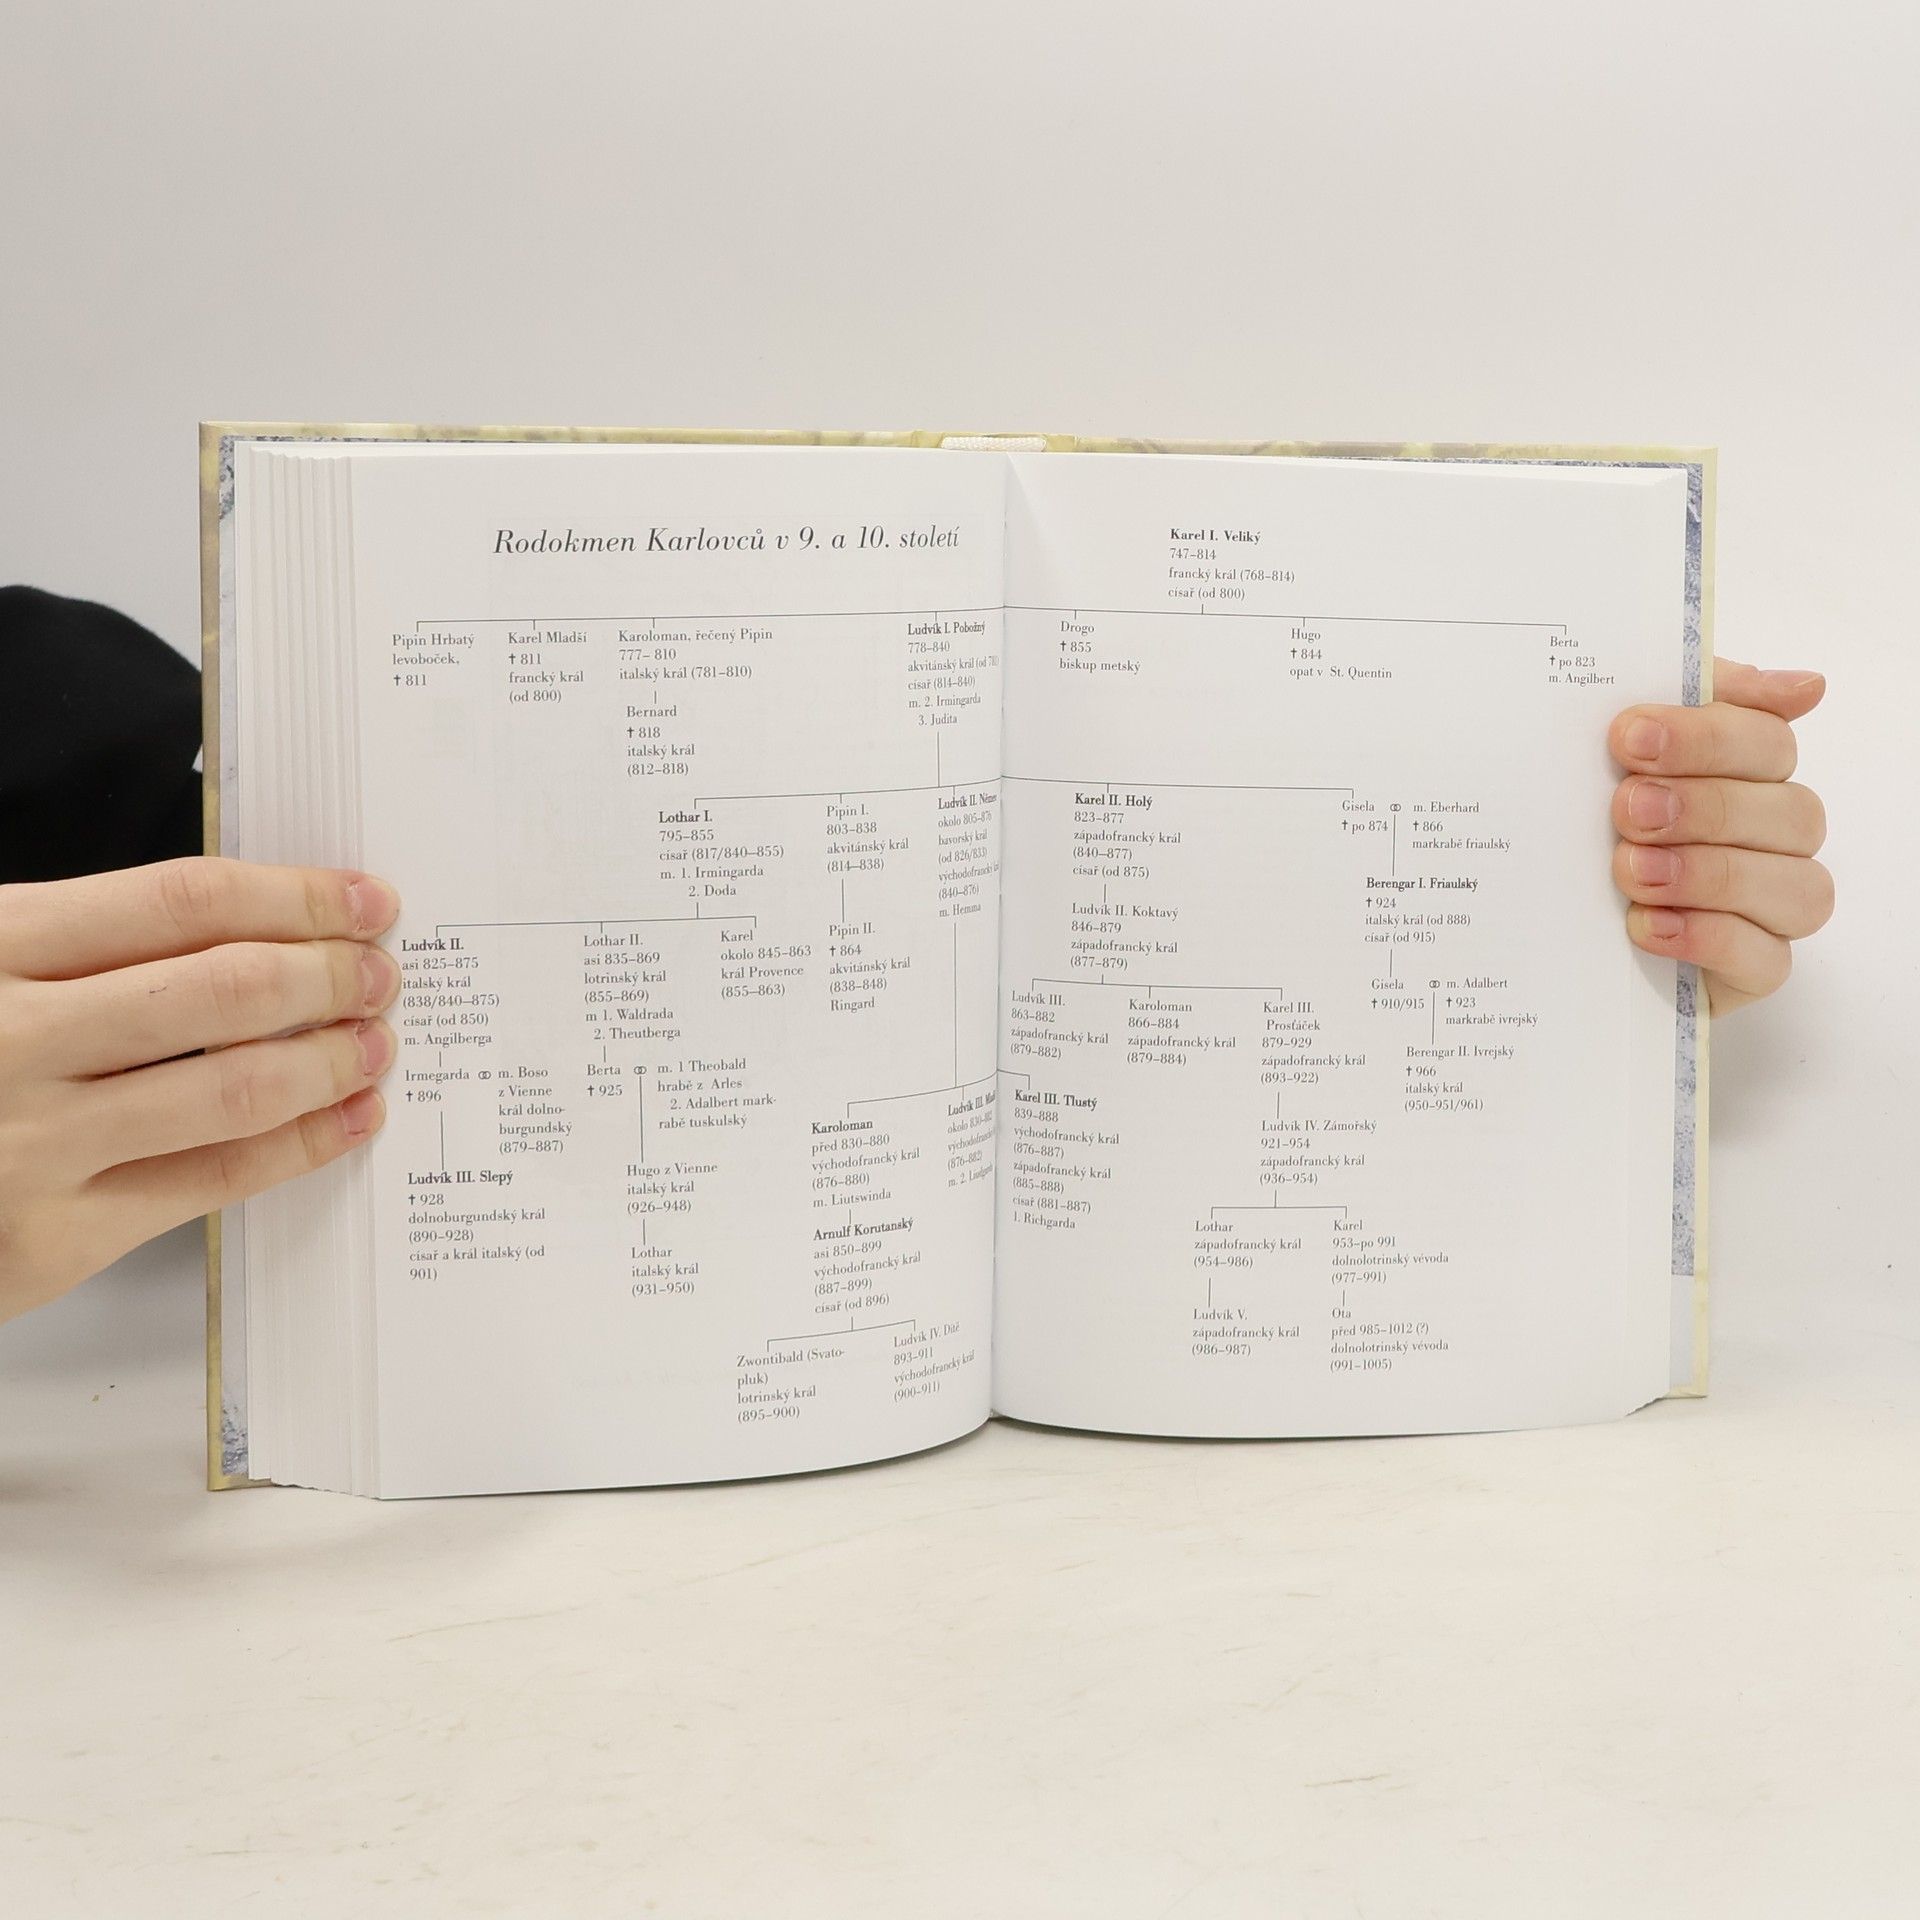 Rodokmen Karlovců v 9. a 10. století
Karel I. Veliký
747–814
francký král (768–814)
císař (od 800)
Pipin Hrbatý
levoboček,
† 811
Karel Mladší
† 811
francký král
(od 800)
Karoloman, řečený Pipin
777– 810
italský král (781–810)
Bernard
† 818
italský král
(812–818)
Ludvík I. Pobožný
778–840
akvitánský král (od
císař (814–840)
m. 2. Irmingarda
3. Judita
Drogo
† 855
biskup metský
Hugo
† 844
opat v St. Quentin
Berta
† po 823
m. Angilbert
Lothar I.
795–855
císař (817/840–855)
m. 1. Irmingarda
2. Doda
Pipin I.
803–838
akvitánský král
(814–838)
Ludvík II.
okolo 805–876
bavorský král
(od 826/833)
východofrancký
(840–876)
m. Hemma
Karel II. Holý
823–877
západofrancký král
(840–877)
císař (od 875)
Gisela ⚭ m. Eberhard
† po 874 † 866
markrabě friaulský
Ludvík II.
asi 825–875
italský král
(838/840–875)
císař (od 850)
m. Angilberga
Lothar II.
asi 835–869
lotrinský král
(855–869)
m 1. Waldrada
2. Theutberga
Karel
okolo 845–863
král Provence
(855–863)
Pipin II.
† 864
akvitánský král
(838–848)
Ringard
Ludvík II. Koktavý
846–879
západofrancký král
(877–879)
Berengar I. Friaulský
† 924
italský král (od 888)
císař (od 915)
Ludvík III.
863–882
západofrancký král
(879–882)
Karoloman
866–884
západofrancký král
(879–884)
Karel III.
Prosťáček
879–929
západofrancký král
(893–922)
Gisela ⚭ m. Adalbert
† 910/915 † 923
markrabě ivrejský
Berengar II. Ivrejský
† 966
italský král
(950–951/961)
Irmegarda ⚭ m. Boso
† 896 z Vienne
král dolno-
burgundský
(879–887)
Berta ⚭ m. 1 Theobald
† 925 hrabě z Arles
2. Adalbert mark-
rabě tuskulský
Karoloman
před 830–880
východofrancký král
(876–880)
m. Liutswinda
Ludvík III.
okolo 830–882
(876–882)
m. 2.
Karel III. Tlustý
839–888
východofrancký král
(876–887)
západofrancký král
(885–888)
císař (881–887)
1. Richgarda
Ludvík IV. Zámořský
921–954
západofrancký král
(936–954)
Ludvík III. Slepý
† 928
dolnoburgundský král
(890–928)
císař a král italský (od
901)
Hugo z Vienne
italský král
(926–948)
Lothar
italský král
(931–950)
Arnulf Korutanský
asi 850–899
východofrancký král
(887–899)
císař (od 896)
Lothar
západofrancký král
(954–986)
Karel
953–po 991
dolnolotrinský vévoda
(977–991)
Zwontibald (Svato-
pluk)
lotrinský král
(895–900)
Ludvík IV. Dítě
893–911
východofrancký král
(900–911)
Ludvík V.
západofrancký král
(986–987)
Ota
před 985–1012 (?)
dolnolotrinský vévoda
(991–1005)